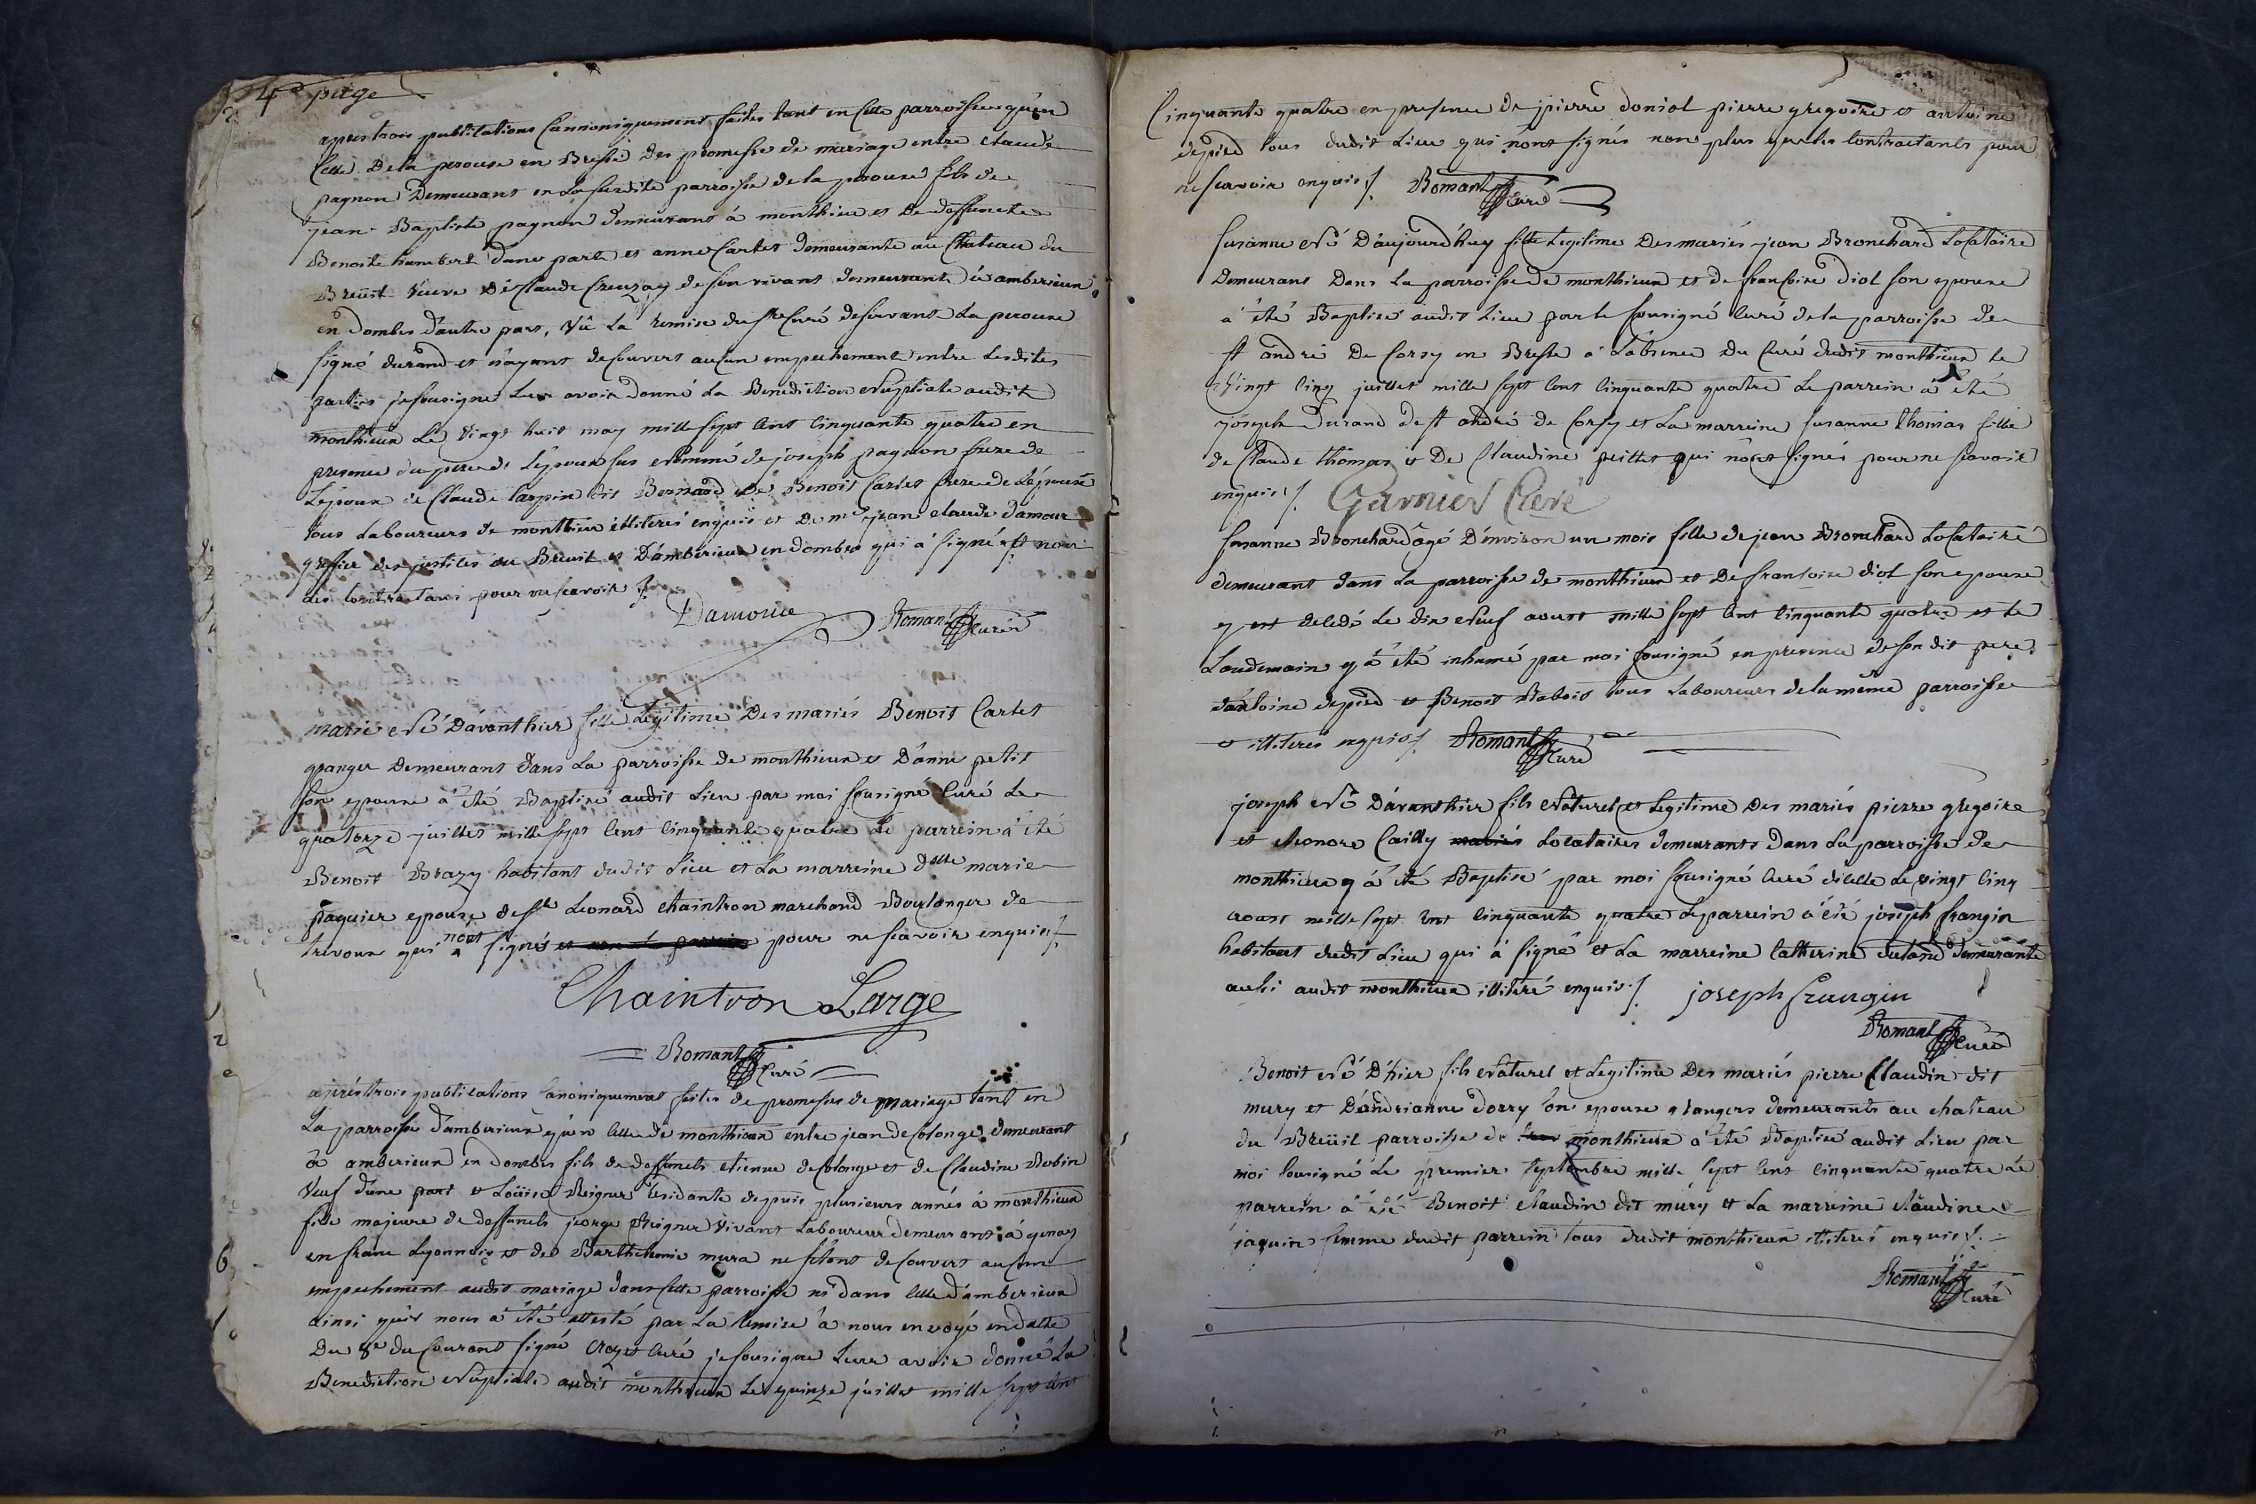 4e page
apres trois publications Cannoniquement faites tant en cette parroisse qu'en
Celle De la perouse en Bresse Des promesses de mariage entre claude
pagnon Demeurant en la susdite parroisse de la perouse fils de
jean-Baptiste pagnon demeurant à monthieu et de deffuncte
Benoite humbert d'une parte et anne Cartet demeurante au Chateau du
Breüil veuve de Claude Creuzay de son vivant demeurant à amberieux
en dombes d'autre part, vû la remise du sr Curé deservant La perouse
signé durand et n'ayant descouvert aucun empechement entre lesdites
parties je soussigné leur avoir donné La Benediction Nuptiale audit
monthieux Le vingt huit may mille sept cent cinquante quatre en
presence du pere de L'epoux sus Nommé de joseph pagnon frere de
L'epoux de Claude Carpin dit Bernard de Benoit Cartet frere de L'epouse
tous Laboureurs de monthieu illiterés enquis et De me jean claude damour
greffier des justices du Breuil et d'amberieux en dombes qui à signé et non
les contractans pour ne scavoir ./.
Damour Romant Curé
marie Né D'avanthier fille Legitime Des mariés Benoit Cartet
granger Demeurant dans La parroisse de monthieux et D'anne petit
son epouse à été Baptisé audit Lieu par moi soussigné Curé Le
quatorze juillet mille sept cent cinquante quatre Le parrein à été
Benoit Brazy habitant dudit Lieu et La marreine delle marie
paquier epouse de sr Leonard chaintron marchand Boulanger de
trevoux qui n'ont signés et non le parrein pour ne scavoir enquis ./.
Chaintron Large
Romant Curé
après trois publications canoniquement faites de promesses de mariage tant en
La parroisse d'amberieux qu'en celle de monthieux entre jean decolonge demeurant
à amberieux en dombes fils de deffuncts etienne decolonge et de Claudine Robin
veuf d'une part et Loüise Reignier residante depuis plusieurs années à monthieux
fille majeure de deffuncts george Reignier vivant Laboureur demeurant à genay
en franc Lyonnois et de Barthelemie mura ne s'etant descouvert aucun
empechement audit mariage dans cette parroisse ni dans celle d'amberieux
ainsi qu'il nous à été attesté par La remise à nous envoyé en datte
Du 8e du Courant signé Crozet curé je soussigné Leur avoir donné La
Benediction Nuptiale audit monthieux Le quinze juillet mille sept cent
Cinquante quatre en presence de pierre doniol pierre gregoire et antoine
depied tous dudit Lieu qui n'ont signés non plus que les contractants pour
ne scavoir enquis ./. Romant Curé
susanne Né D'aujourd'huy fille Legitime Des mariés jean Bronchard Locataire
Demeurant Dans La parroisse de monthieux et de francoise diot son epouse
à été Baptisé audit Lieu par le soussigné Curé de la parroisse de
st andré De Corsy en Bresse à L'absence Du Curé dudit monthieux le
vingt cinq juillet mille sept cent cinquante quatre Le parrein à été
joseph durand de st andré de Corsy et La marreine susanne thomas fille
de Claude thomas et De Claudine peillet qui n'ont signés pour ne scavoir
enquis ./. Garnier Curé
susanne Bronchard âgé D'environ un mois fille de jean Bronchard Locataire
demeurant dans La parroisse de monthieux et De francoise diot son epouse
y est decedé Le dix Neuf aoust mille sept cent cinquante quatre et le
Landemain y à été inhumé par moi soussigné en presence de son dit pere
d'antoine depied et Benoit Rabois tous Laboureurs de la même parroisse
illiteres enquis ./. Romant Curé
joseph Né D'avanthier fils Naturel et Legitime Des mariés pierre gregoire
et eleonore Cailly mariés Locataires demeurants Dans La parroisse De
monthieux y à été Baptisé par moi soussigné Curé dicelle Le vingt cinq
aoust mille sept cent cinquante quatre Le parrein à été joseph frangin
habitant dudit Lieu qui à signé et La marreine Catherine duland demeurante
aussi audit monthieux illiteré enquis ./. joseph frangin
Romant Curé
Benoit Né D'hier fils Naturel et Legitime Des mariés pierre Claudin dit
mury et D'andrianne dorry son epouse grangers demeurants au chateau
du Breüil parroisse de monthieux à été Baptisé audit Lieu par
moi soussigné Le premier septembre mille sept cent cinquante quatre Le
parrein à été Benoit Claudin dit mury et La marreine Claudine
jaquin femme dudit parrein tous dudit monthieux illiterés enquis ./.
Romant Curé